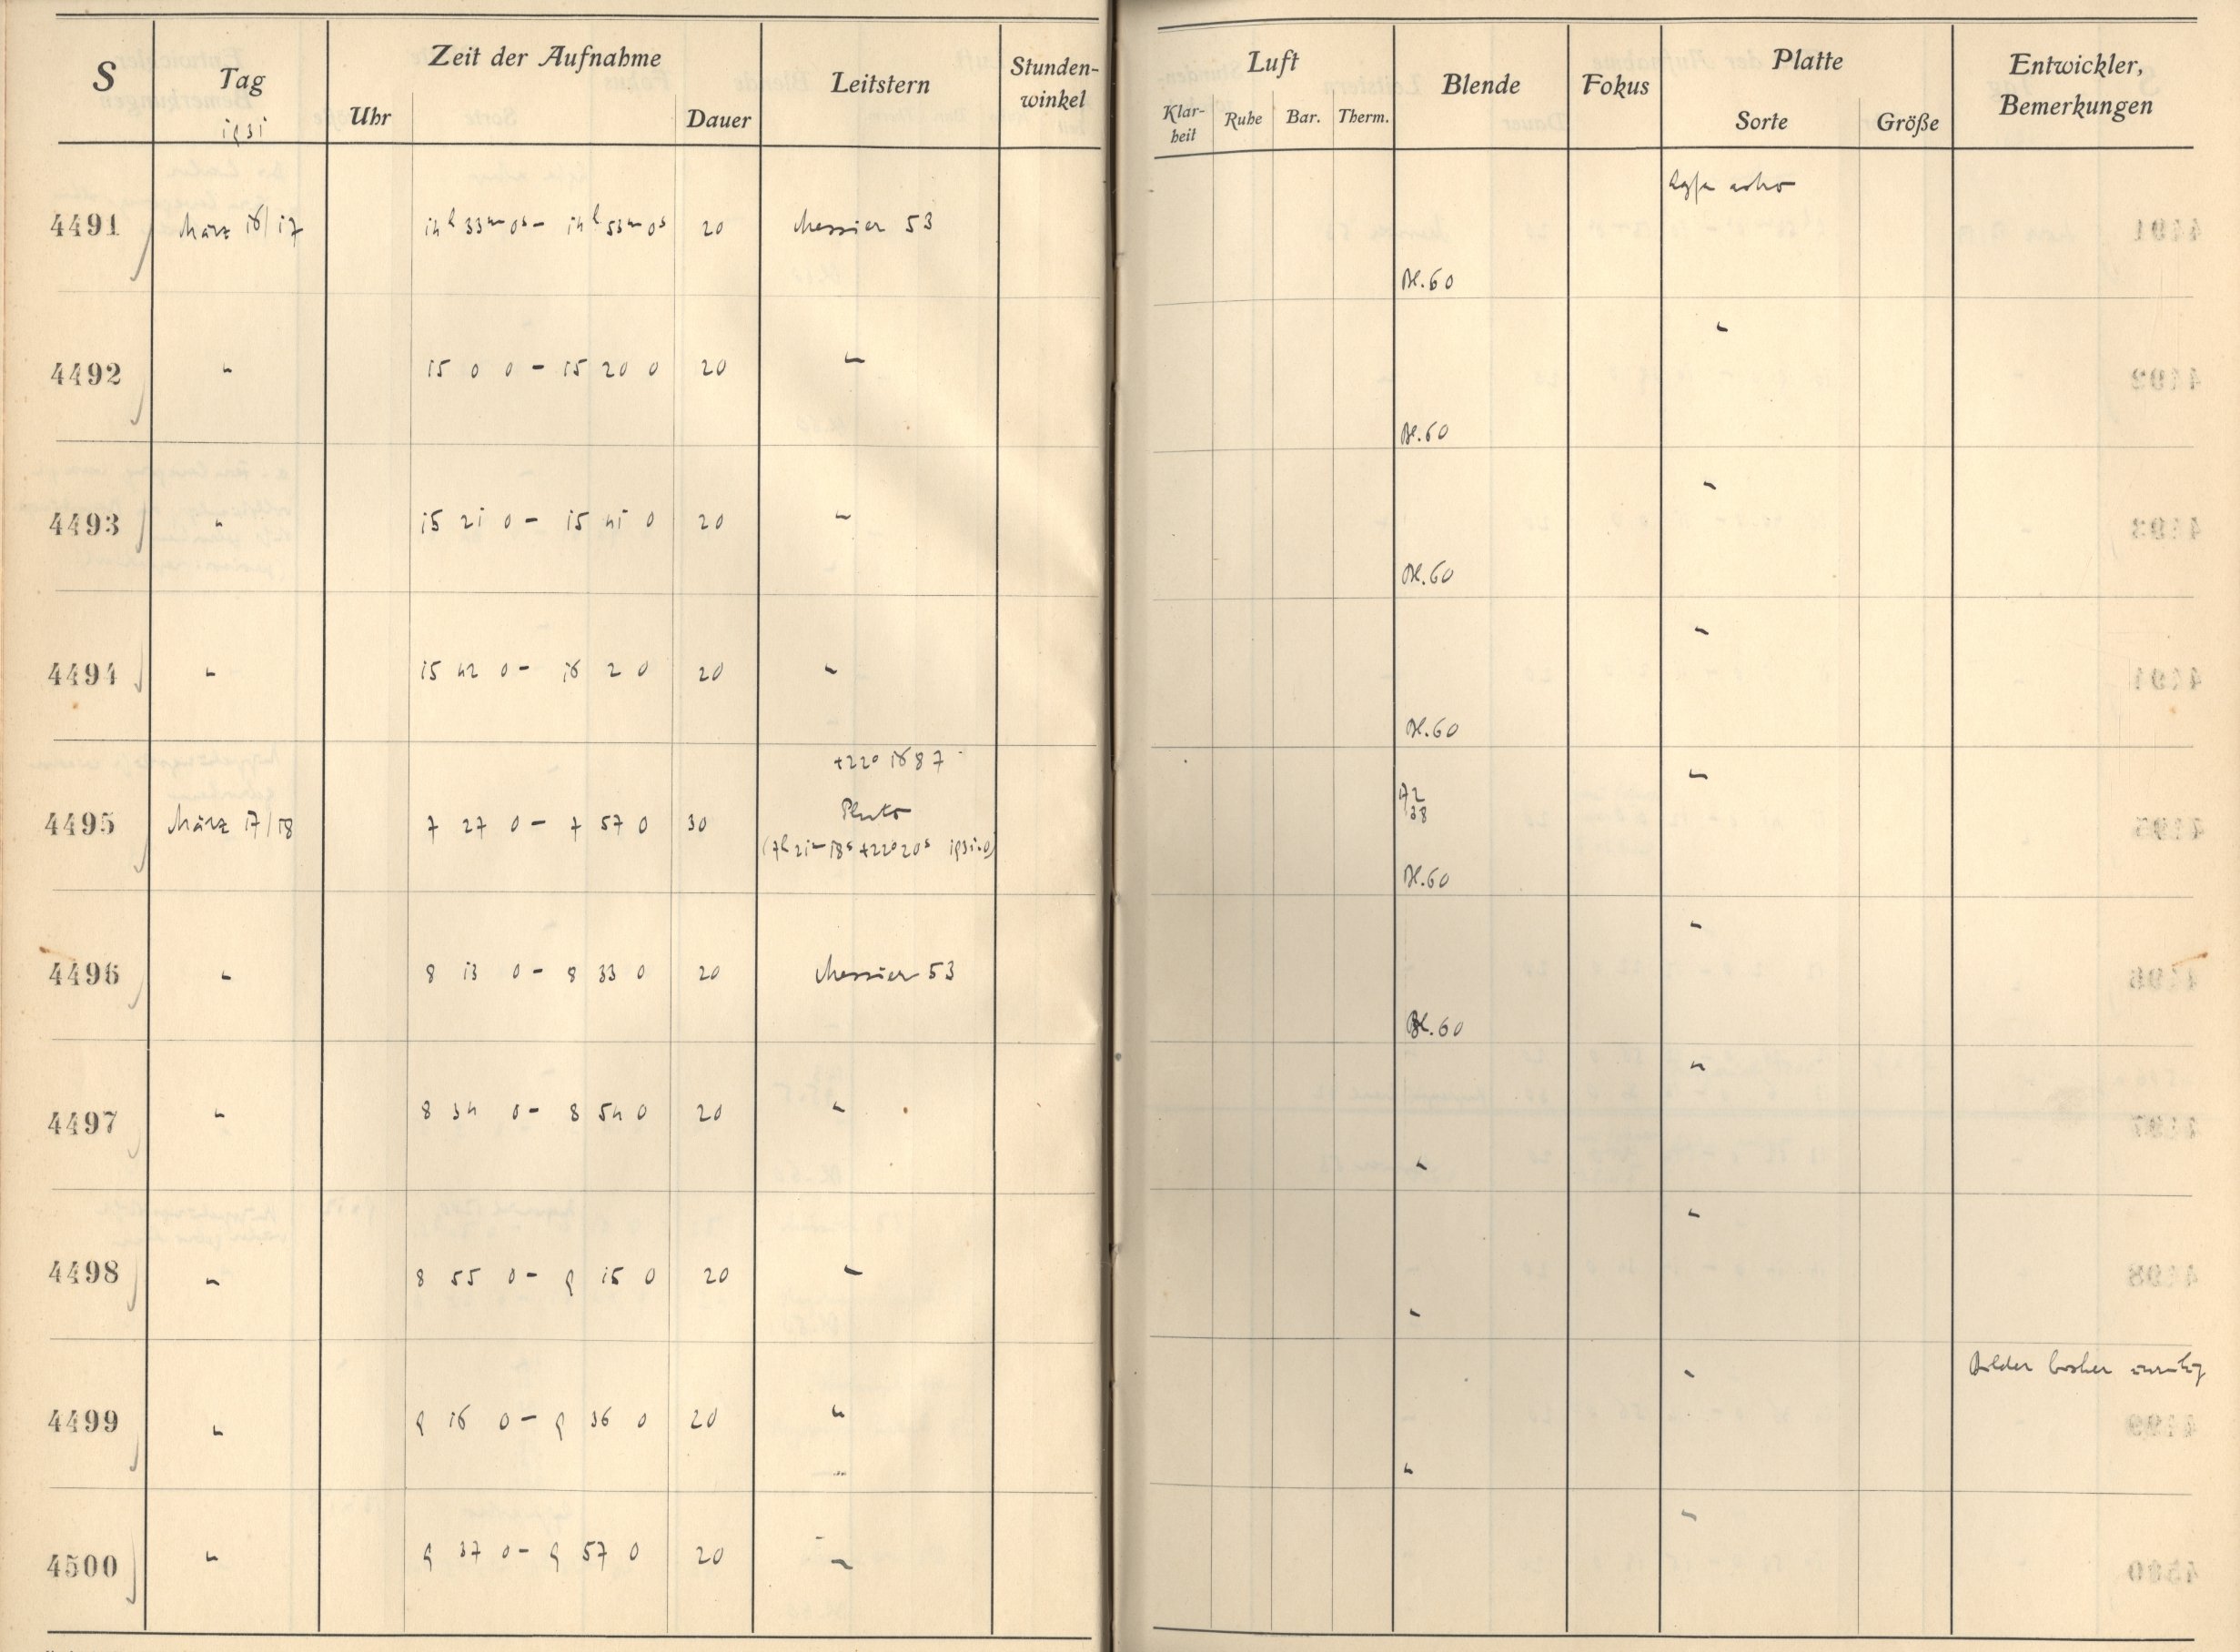 S Tag Zeit der Aufnahme Leitstern Stunden-winkel Luft Blende Fokus Platte Entwickler, Bemerkungen
Uhr Dauer Klar-heit Ruhe Bar. Therm. Sorte Größe
1931
Agfa astro
4491 März 16/17 14h 33m 0s - 14h 53m 0s 20 Messier 53
Bl. 60
4492 " 15 0 0 - 15 20 0 20 " "
Bl. 60
4493 " 15 21 0 - 15 41 0 20 " "
Bl. 60
4494 " 15 42 0 - 16 2 0 20 " "
Bl. 60
+22° 1687 "
4495 März 17/18 7 27 0 - 7 57 0 30 Pluto
(7h 21m 18s +22° 20s 1931.0)
Bl. 60
4496 " 8 13 0 - 8 33 0 20 Messier 53 "
Bl. 60
4497 " 8 34 0 - 8 54 0 20 " " "
4498 " 8 55 0 - 9 15 0 20 " " "
Bilder bisher
4499 " 9 16 0 - 9 36 0 20 " " "
4500 " 9 37 0 - 9 57 0 20 " "